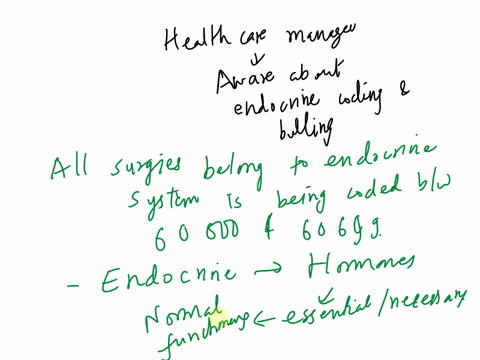 Health care manager
↓
Aware about
endocrine coding &
billing
All surgies belong to endocrine
system is being coded b/w
60000 & 60699.
- Endocrine → Hormones
↓
Normal ← essential/necessary
functioning